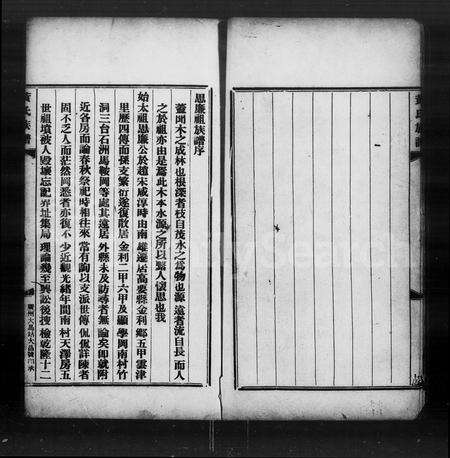 思廉祖族譜序
蓋聞木之成林也根深者枝自茂水之為物也源遠者流自長而人
之於祖亦由是為此木本水源之所以繫人懷思也我
始太祖思廉公於趙宋咸淳時由南雄遷居高要縣金利鄉五甲雲津
里歷四傳而孫支繁衍遂復散居金利二甲六甲及顯學岡南村竹
洞三台石洲馬鞍岡等處其遠居外縣未及訪尋者無論矣即就附
近各房而論春秋祭祀時相往來常有詢以支派世傳侃侃詳陳者
固不乏人而茫然罔悉者亦復不少近觀光緒年間南村天澤房五
世祖墳被人毀壞忘記界址集局理論幾至興訟後搜檢乾隆十二
氏族譜
氏族譜